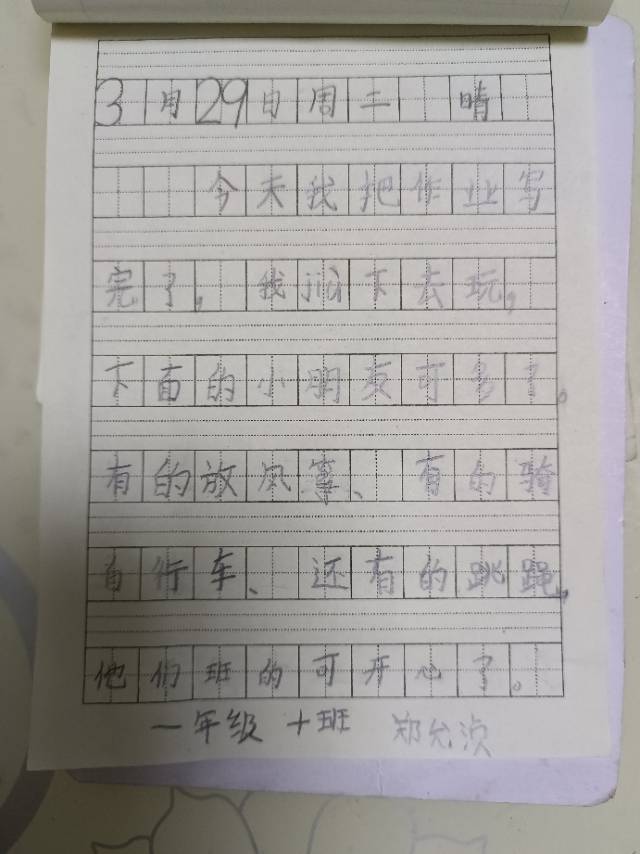 3月29日周二 晴
今天我把作业写
完了，我jiù下去玩，
下面的小朋友可多了。
有的放风筝、有的骑
自行车、还有的跳绳，
他们班的可开心了。
一年级 十班 郑允浈